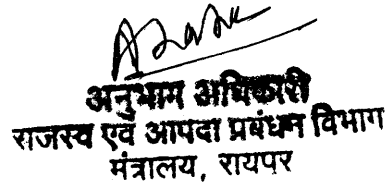 अनुभाग अधिकारी
राजस्व एवं आपदा प्रबंधन विभाग
मंत्रालय, रायपर